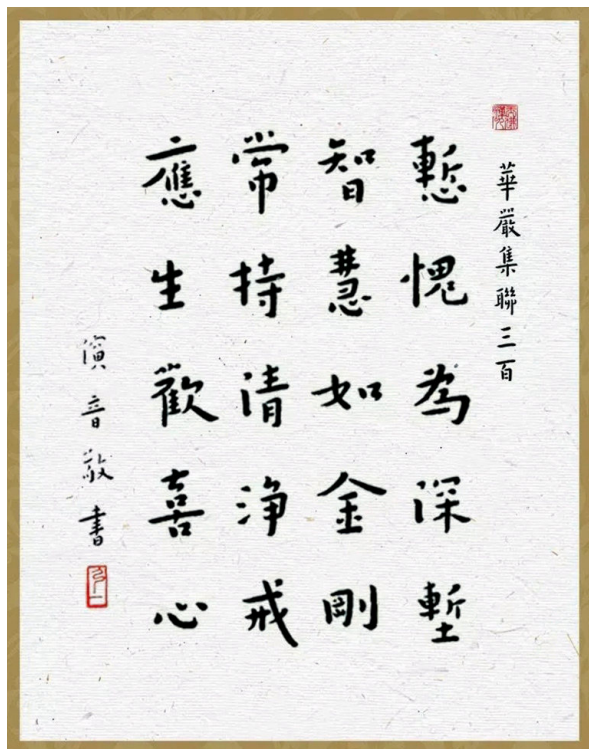 華嚴集聯三百
慙愧為深塹
智慧如金剛
常持清淨戒
應生歡喜心
演音敬書